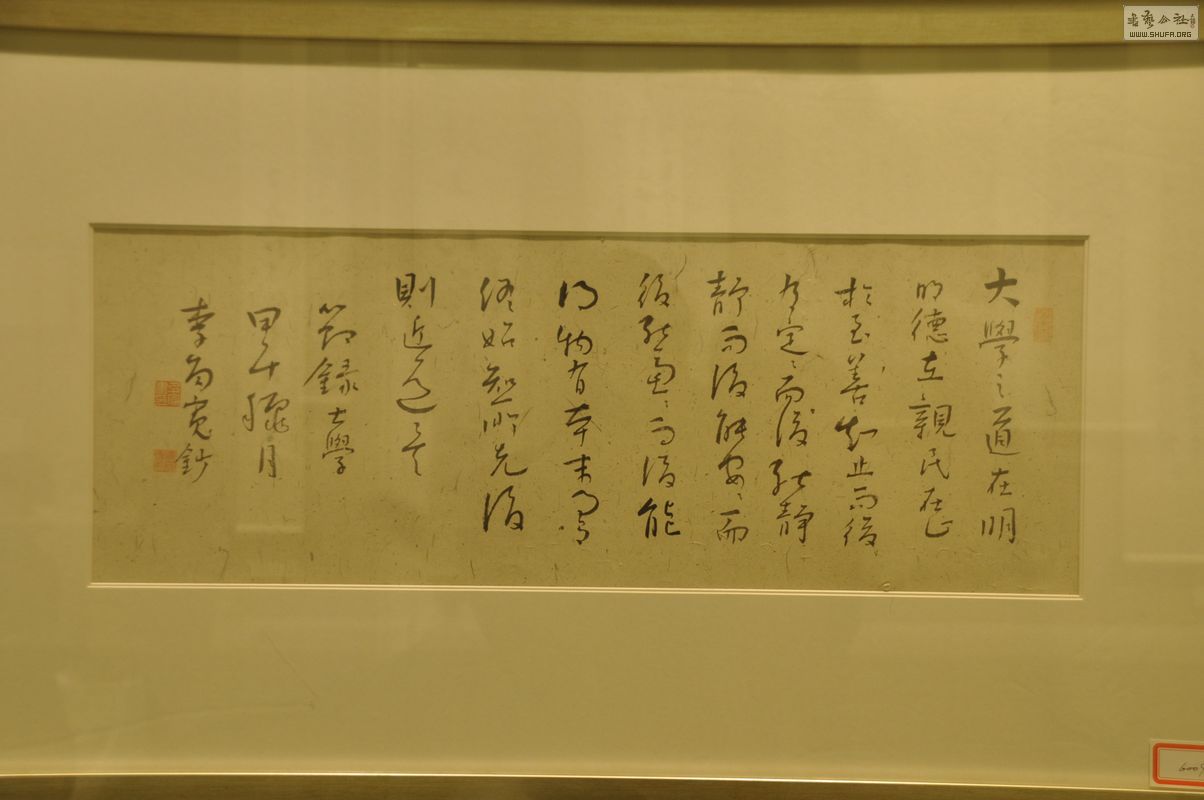 大學之道在明
明德在親民在止
於至善知止而後
有定〻而後能靜
靜而後能安〻而
後能慮〻而後能
得物有本末事
終始知所先後
則近道矣
節錄大學
甲午臘月
李尚鈔
WWW.SHUFA.ORG